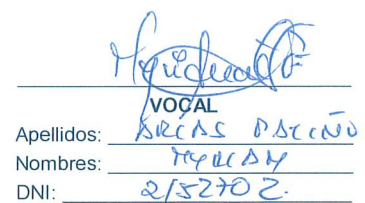 VOCAL
Apellidos: ARIAS PATIÑO
Nombres: MYRIAM
DNI: 2152702.